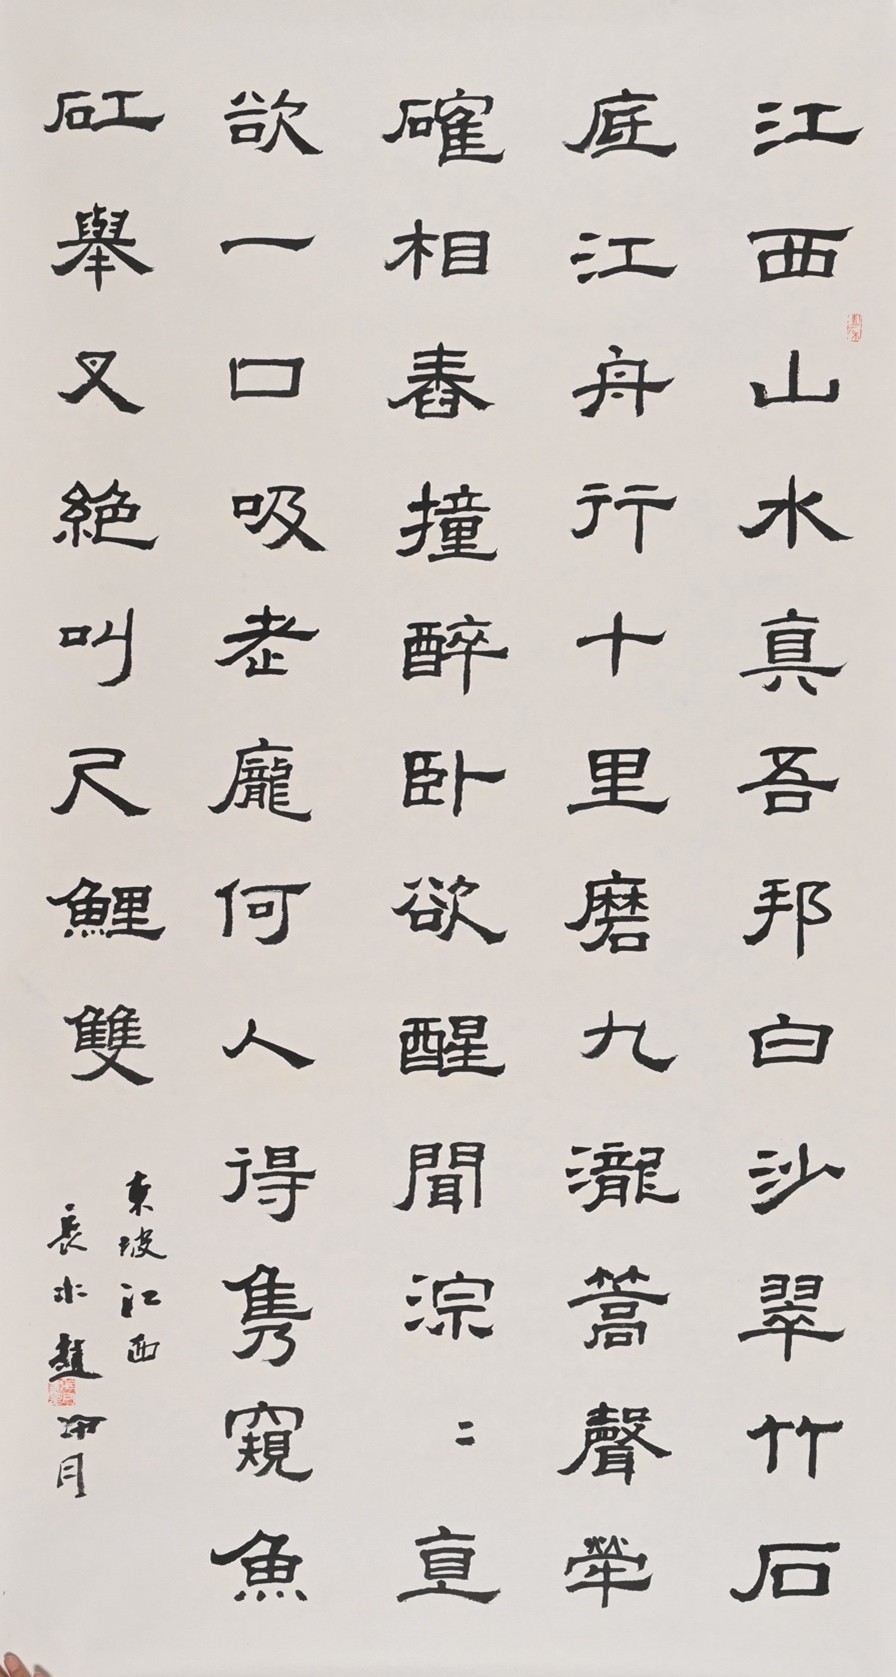 江西山水真吾邦白沙翠竹石
底江舟行十里磨九瀧篙聲犖
确相舂撞醉卧欲醒聞淙〻直
欲一口吸老龐何人得雋窺魚
矼舉叉絕叫尺鯉雙
東坡江西
長水趙冲月